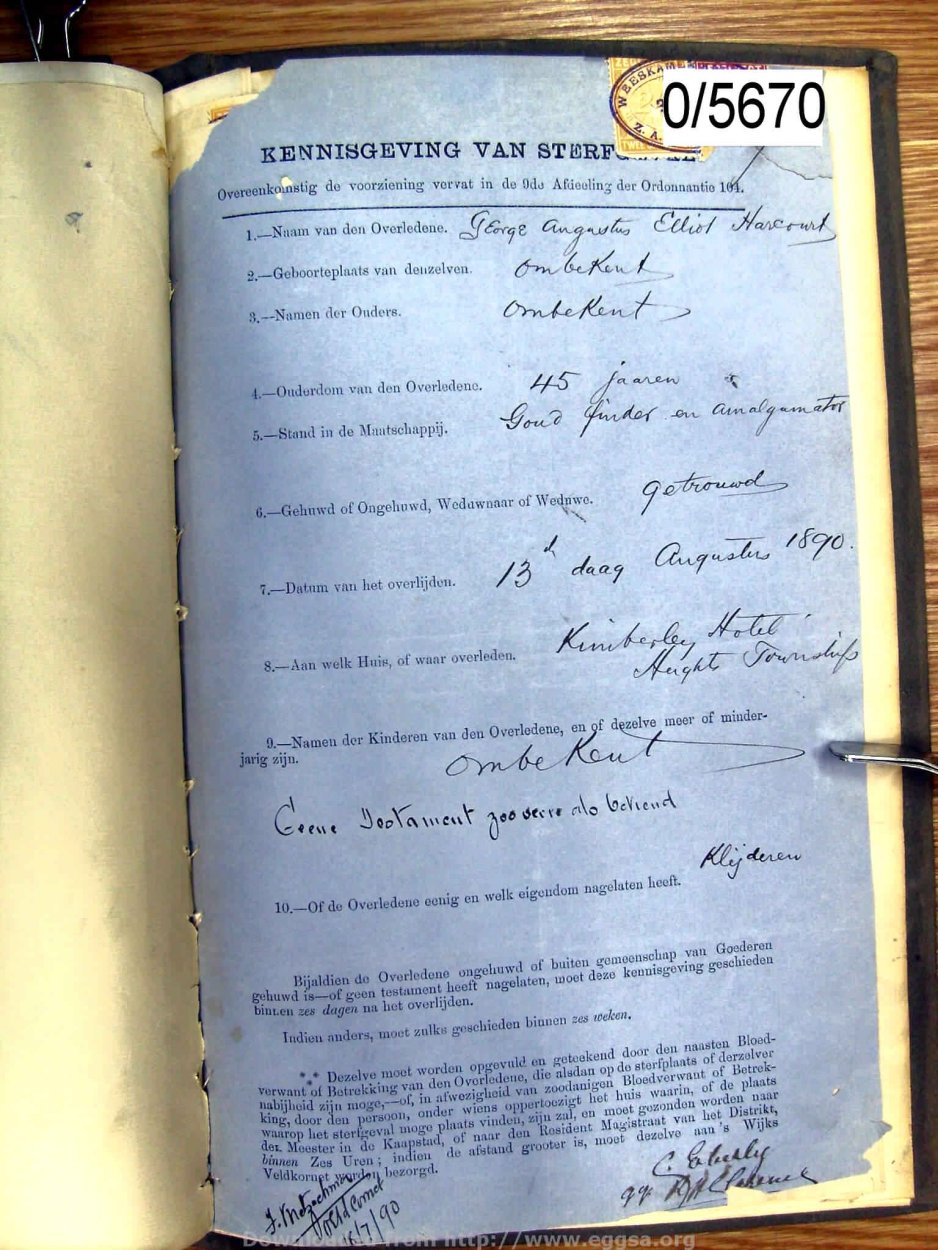 WEESKAME
Z. A.
TWEE
0/5670
KENNISGEVING VAN STERF
Overeenkomstig de voorziening vervat in de 9de Afdeeling der Ordonnantie 104.
1.—Naam van den Overledene. George Augustus Elliot Harcourt
2.—Geboorteplaats van denzelven. ombekent
3.—Namen der Ouders. Ombekent
4.—Ouderdom van den Overledene. 45 jaaren
5.—Stand in de Maatschappij. Goud finder en amalgamator
6.—Gehuwd of Ongehuwd, Weduwnaar of Weduwe. getrouwd
7.—Datum van het overlijden. 13 d daag Augustus 1890.
8.—Aan welk Huis, of waar overleden. Kimberley Hotel
Heights Township
9.—Namen der Kinderen van den Overledene, en of dezelve meer of minder-
jarig zijn. ombekent
Geene Testament zoo verre als bekend
Klijderen
10.—Of de Overledene eenig en welk eigendom nagelaten heeft.
Bijaldien de Overledene ongehuwd of buiten gemeenschap van Goederen
gehuwd is—of geen testament heeft nagelaten, moet deze kennisgeving geschieden
binnen zes dagen na het overlijden.
Indien anders, moet zulks geschieden binnen zes weken.
*** Dezelve moet worden opgevuld en geteekend door den naasten Bloed-
verwant of Betrekking van den Overledene, die alsdan op de sterfplaats of derzelver
nabijheid zijn moge,—of, in afwezigheid van zoodanigen Bloedverwant of Betrek-
king, door den persoon, onder wiens oppertoezigt het huis waarin, of de plaats
waarop het sterfgeval moge plaats vinden, zijn zal, en moet gezonden worden naar
den Meester in de Kaapstad, of naar den Resident Magistraat van het Distrikt,
binnen Zes Uren; indien de afstand grooter is, moet dezelve aan's Wijks
Veldkornet worden bezorgd.
Downloaded from http://www.eggsa.org